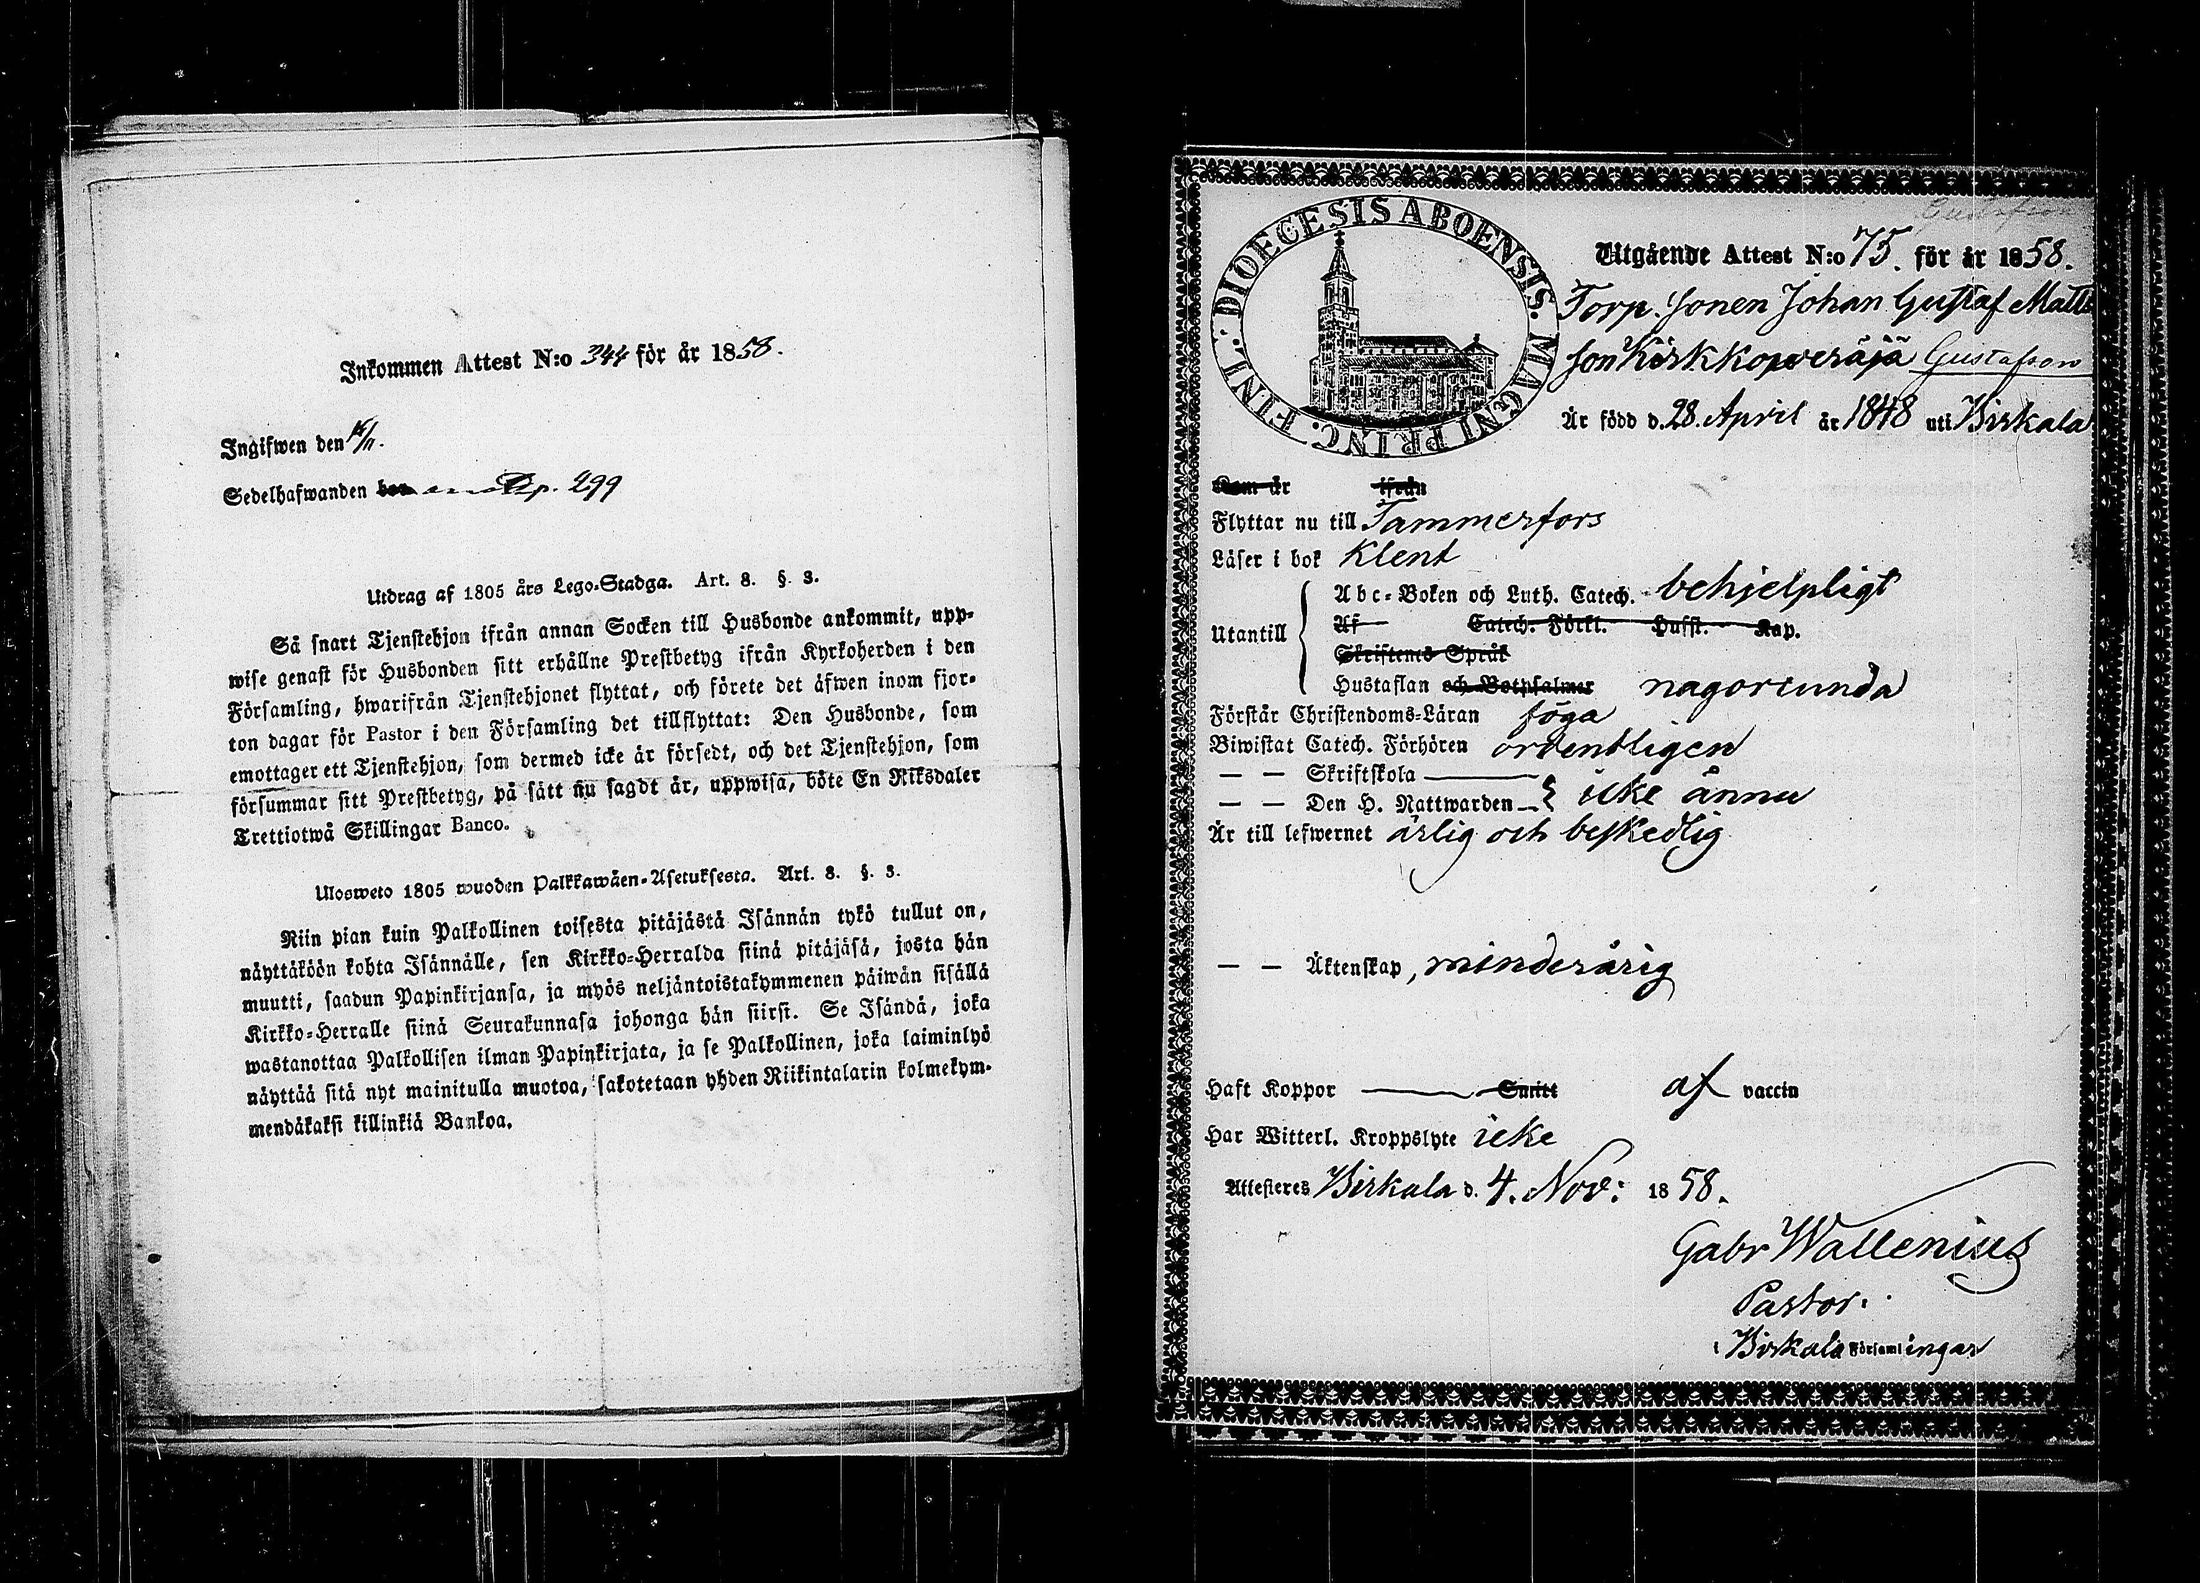 Inkommen Attest N:o 344 för år 1858.
Ingifwen den 16/11.
Sedelhafwanden p. 299
Utdrag af 1805 års Lego-Stadga. Art. 8. §. 3.
Så snart Tjenstehjon ifrån annan Socken till Husbonde ankommit, upp-
wise genast för Husbonden sitt erhållne Prestbetyg ifrån Kyrkoherden i den
Församling, hwarifrån Tjenstehjonet flyttat, och förete det äfwen inom fjor-
ton dagar för Pastor i den Församling det tillflyttat: Den Husbonde, som
emottager ett Tjenstehjon, som dermed icke är försedt, och det Tjenstehjon, som
försummar sitt Prestbetyg, på sätt nu sagdt är, uppwisa, böte En Riksdaler
Trettiotwå Skillingar Banco.
Ulosweto 1805 wuoden Palkkawäen-Asetuksesta. Art. 8. §. 3.
Niin pian kuin Palkollinen toisesta pitäjästä Isännän tykö tullut on,
näyttäköön kohta Isännälle, sen Kirkko-Herralda siinä pitäjäsä, josta hän
muutti, saadun Papinkirjansa, ja myös neljäntoistakymmenen päiwän sisällä
Kirkko-Herralle siinä Seurakunnasa johonga hän siirsi. Se Isändä, joka
wastanottaa Palkollisen ilman Papinkirjata, ja se Palkollinen, joka laiminlyö
näyttää sitä nyt mainitulla muotoa, sakotetaan yhden Riikintalarin kolmekym-
mendäkaksi killinkiä Bankoa.
FINL: DIOECESIS ABOENSIS. MAGNI PRINC.
Gustafson
Utgående Attest N:o 75. för år 1858.
Torp. Sonen Johan Gustaf Matts
son Kirkkopereäjä Gustafsson
Är född d. 28. April år 1848 uti Birkala
Kom år ifrån
Flyttar nu till Tammerfors
Läser i bok klent
Utantill
Abc-Boken och Luth. Catech. behjelpligt
Af Catech. Förkl. Husst. Kap.
Skriftenes Språk
Hustaflan och Botpsalmer nagorlunda
Förstår Christendoms-Läran föga
Biwistat Catech. Förhören ordentligen
— — Skriftskola
— — Den H. Nattwarden icke ännu
Är till lefwernet ärlig och beskedlig
— — Äktenskap, minderårig
Haft Koppor Smitt af vaccin
Har Witterl. Kroppslyte icke
Attesteres Birkala d. 4. Nov: 1858.
Gabr Wallenius
Pastor.
i Birkala Församlingar